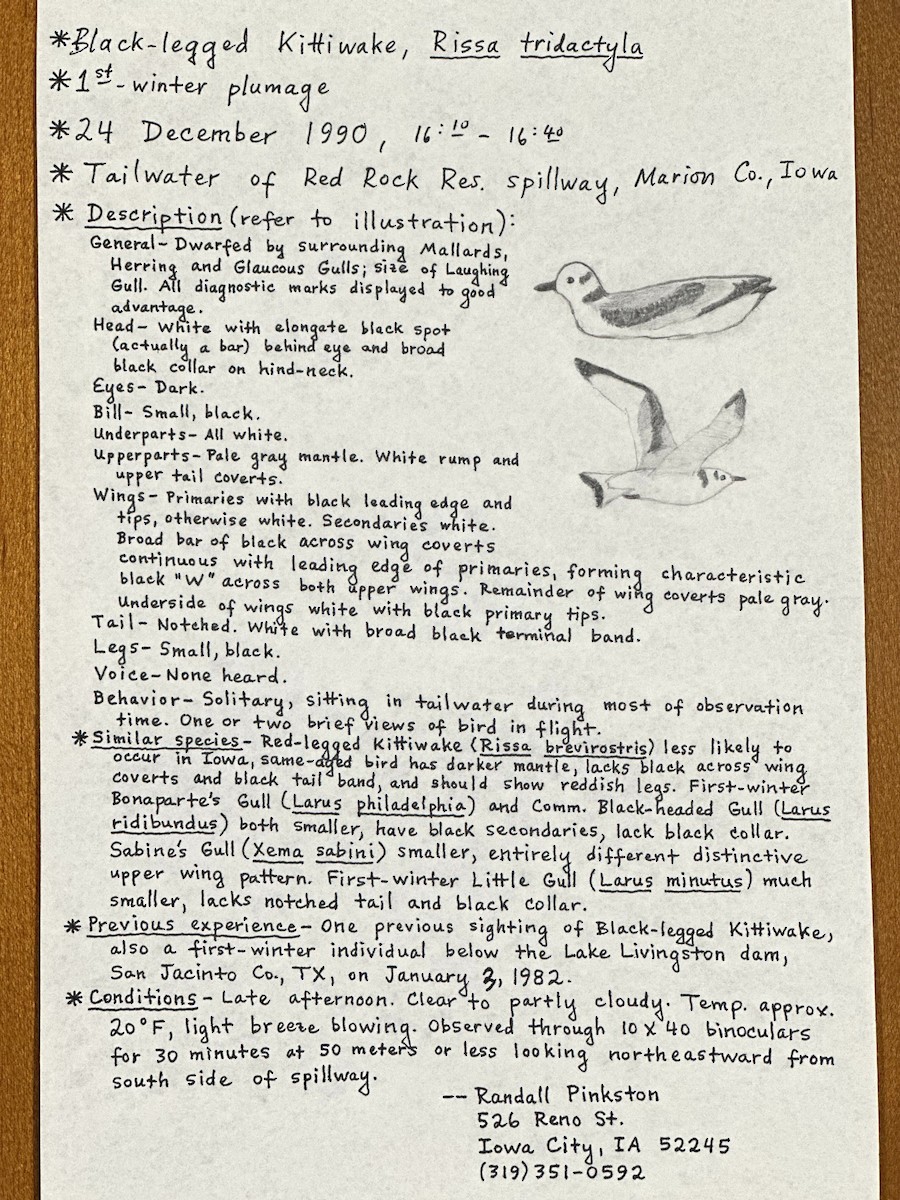 *Black-legged Kittiwake, Rissa tridactyla
*1st-winter plumage
*24 December 1990, 16:10 - 16:40
* Tailwater of Red Rock Res. spillway, Marion Co., Iowa
* Description (refer to illustration):
General- Dwarfed by surrounding Mallards,
Herring and Glaucous Gulls; size of Laughing
Gull. All diagnostic marks displayed to good
advantage.
Head- White with elongate black spot
(actually a bar) behind eye and broad
black collar on hind-neck.
Eyes- Dark.
Bill- Small, black.
Underparts- All white.
Upperparts- Pale gray mantle. White rump and
upper tail coverts.
Wings- Primaries with black leading edge and
tips, otherwise white. Secondaries white.
Broad bar of black across wing coverts
continuous with leading edge of primaries, forming characteristic
black "W" across both upper wings. Remainder of wing coverts pale gray.
Underside of wings white with black primary tips.
Tail- Notched. White with broad black terminal band.
Legs- Small, black.
Voice- None heard.
Behavior- Solitary, sitting in tailwater during most of observation
time. One or two brief views of bird in flight.
* Similar species- Red-legged Kittiwake (Rissa brevirostris) less likely to
occur in Iowa, same-aged bird has darker mantle, lacks black across wing
coverts and black tail band, and should show reddish legs. First-winter
Bonaparte's Gull (Larus philadelphia) and Comm. Black-headed Gull (Larus
ridibundus) both smaller, have black secondaries, lack black collar.
Sabine's Gull (Xema sabini) smaller, entirely different distinctive
upper wing pattern. First-winter Little Gull (Larus minutus) much
smaller, lacks notched tail and black collar.
* Previous experience- One previous sighting of Black-legged Kittiwake,
also a first-winter individual below the Lake Livingston dam,
San Jacinto Co., TX, on January 3, 1982.
* Conditions- Late afternoon. Clear to partly cloudy. Temp. approx.
20°F, light breeze blowing. Observed through 10 X 40 binoculars
for 30 minutes at 50 meters or less looking northeastward from
south side of spillway.
-- Randall Pinkston
526 Reno St.
Iowa City, IA 52245
(319) 351-0592